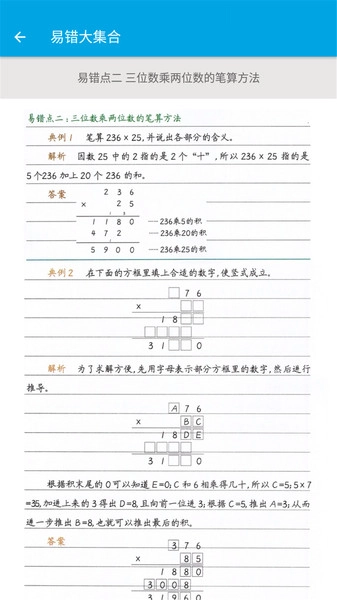 易错大集合
易错点二 三位数乘两位数的笔算方法
易错点二:三位数乘两位数的笔算方法
典例1 笔算236×25,并说出各部分的含义。
解析 因数25中的2指的是2个“十”,所以236×25指的是
5个236加上20个236的和。
答案 2 3 6
× 2 5
1 1 8 0 —236乘5的积
4 7 2 —236乘20的积
5 9 0 0 —236乘25的积
典例2 在下面的方框里填上合适的数字,使竖式成立。
□ 7 6
× □ □
1 8 □ □
□ □ □ □
3 1 □ □ 0
解析 为了求解方便,先用字母表示部分方框里的数字,然后进行
推导。
A 7 6
× B C
1 8 D E
□ □ □ □
3 1 □ □ 0
根据积末尾的0可以知道E=0;C和6相乘得几十,所以C=5;5×7
=35,加进上来的3得出D=8,且向前一位进3;根据C=5,推出A=3;从而
进一步推出B=8,也就可以推出最后的积。
答案 3 7 6
× 8 5
1 8 8 0
3 0 0 8
3 1 9 6 0